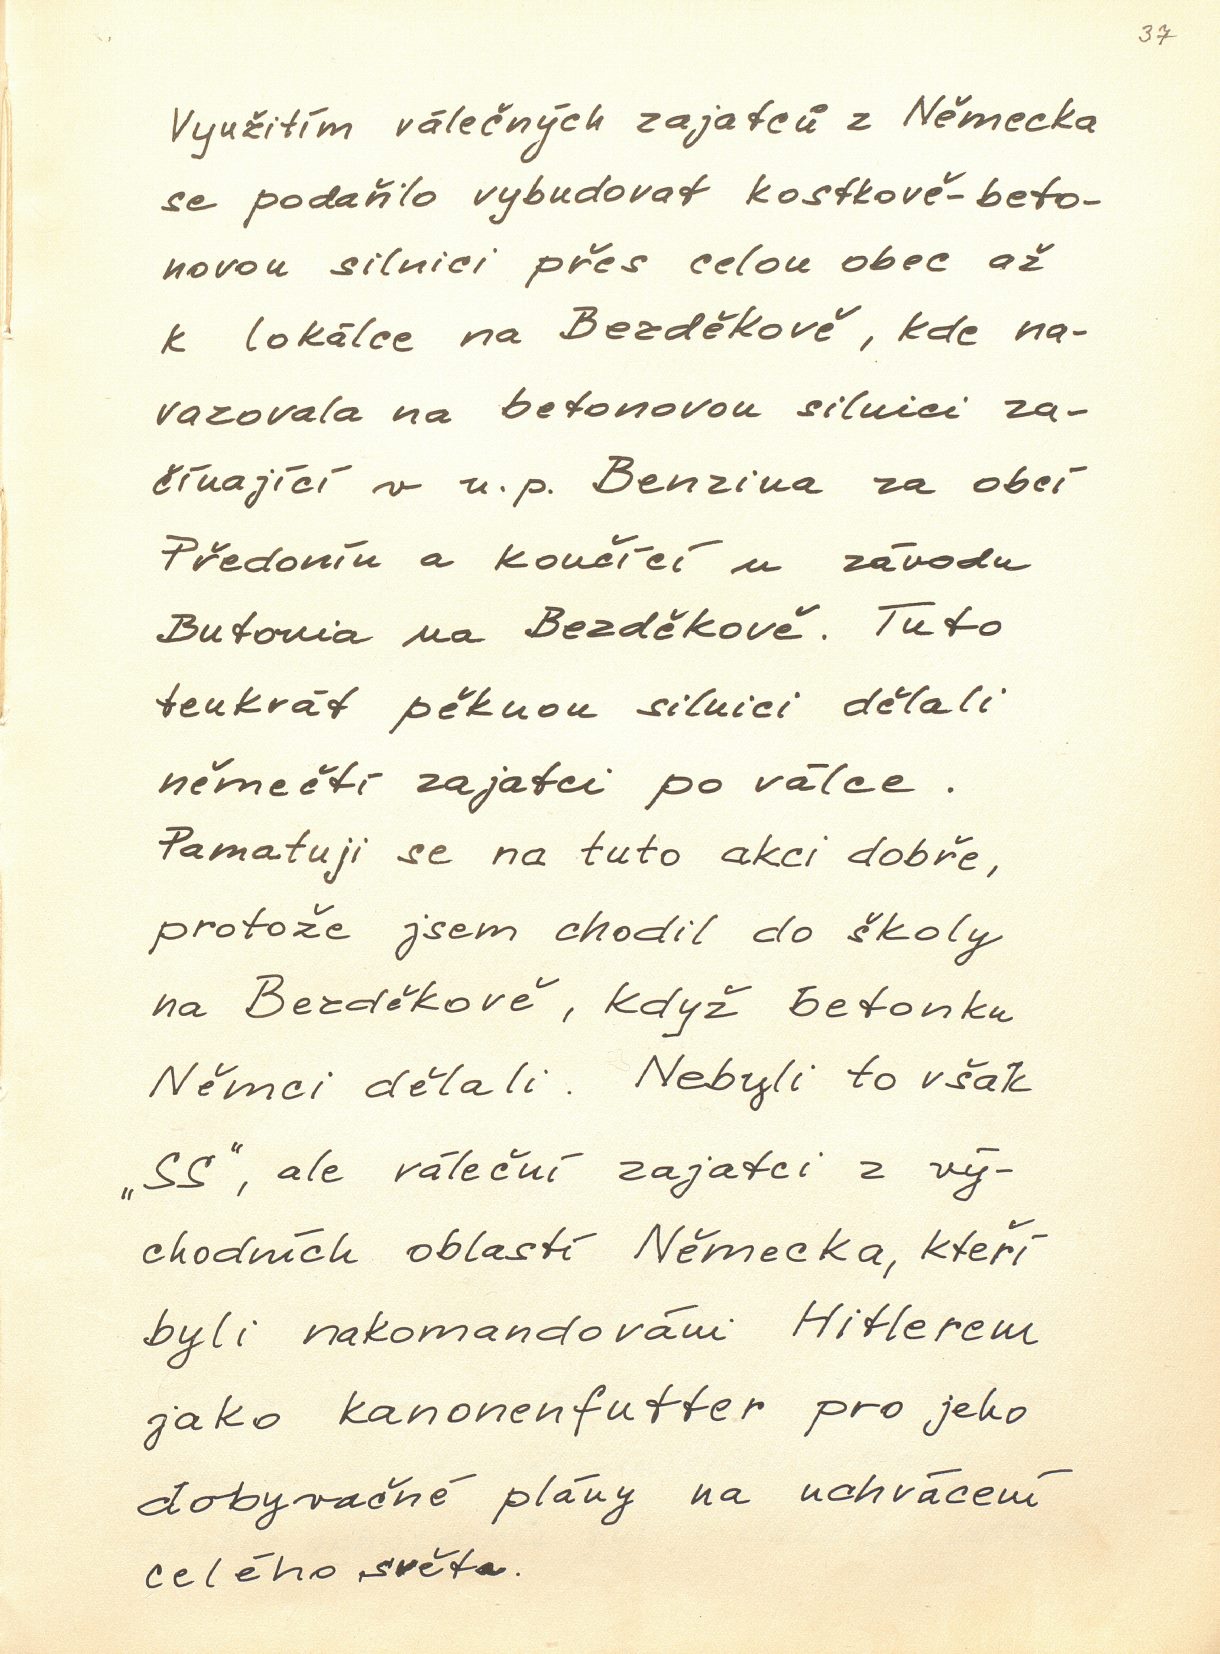 37
Využitím válečných zajatců z Německa
se podařilo vybudovat kostkově-beto-
novou silnici přes celou obec až
k lokálce na Bezděkově, kde na-
vazovala na betonovou silnici za-
čínající v n.p. Benzina za obcí
Předonín a končící u závodu
Butonia na Bezděkově. Tuto
tenkrát pěknou silnici dělali
němečtí zajatci po válce.
Pamatuji se na tuto akci dobře,
protože jsem chodil do školy
na Bezděkově, když betonku
Němci dělali. Nebyli to však
„SS“, ale váleční zajatci z vý-
chodních oblastí Německa, kteří
byli nakomandováni Hitlerem
jako kanonenfutter pro jeho
dobyvačné plány na uchvácení
celého světa.